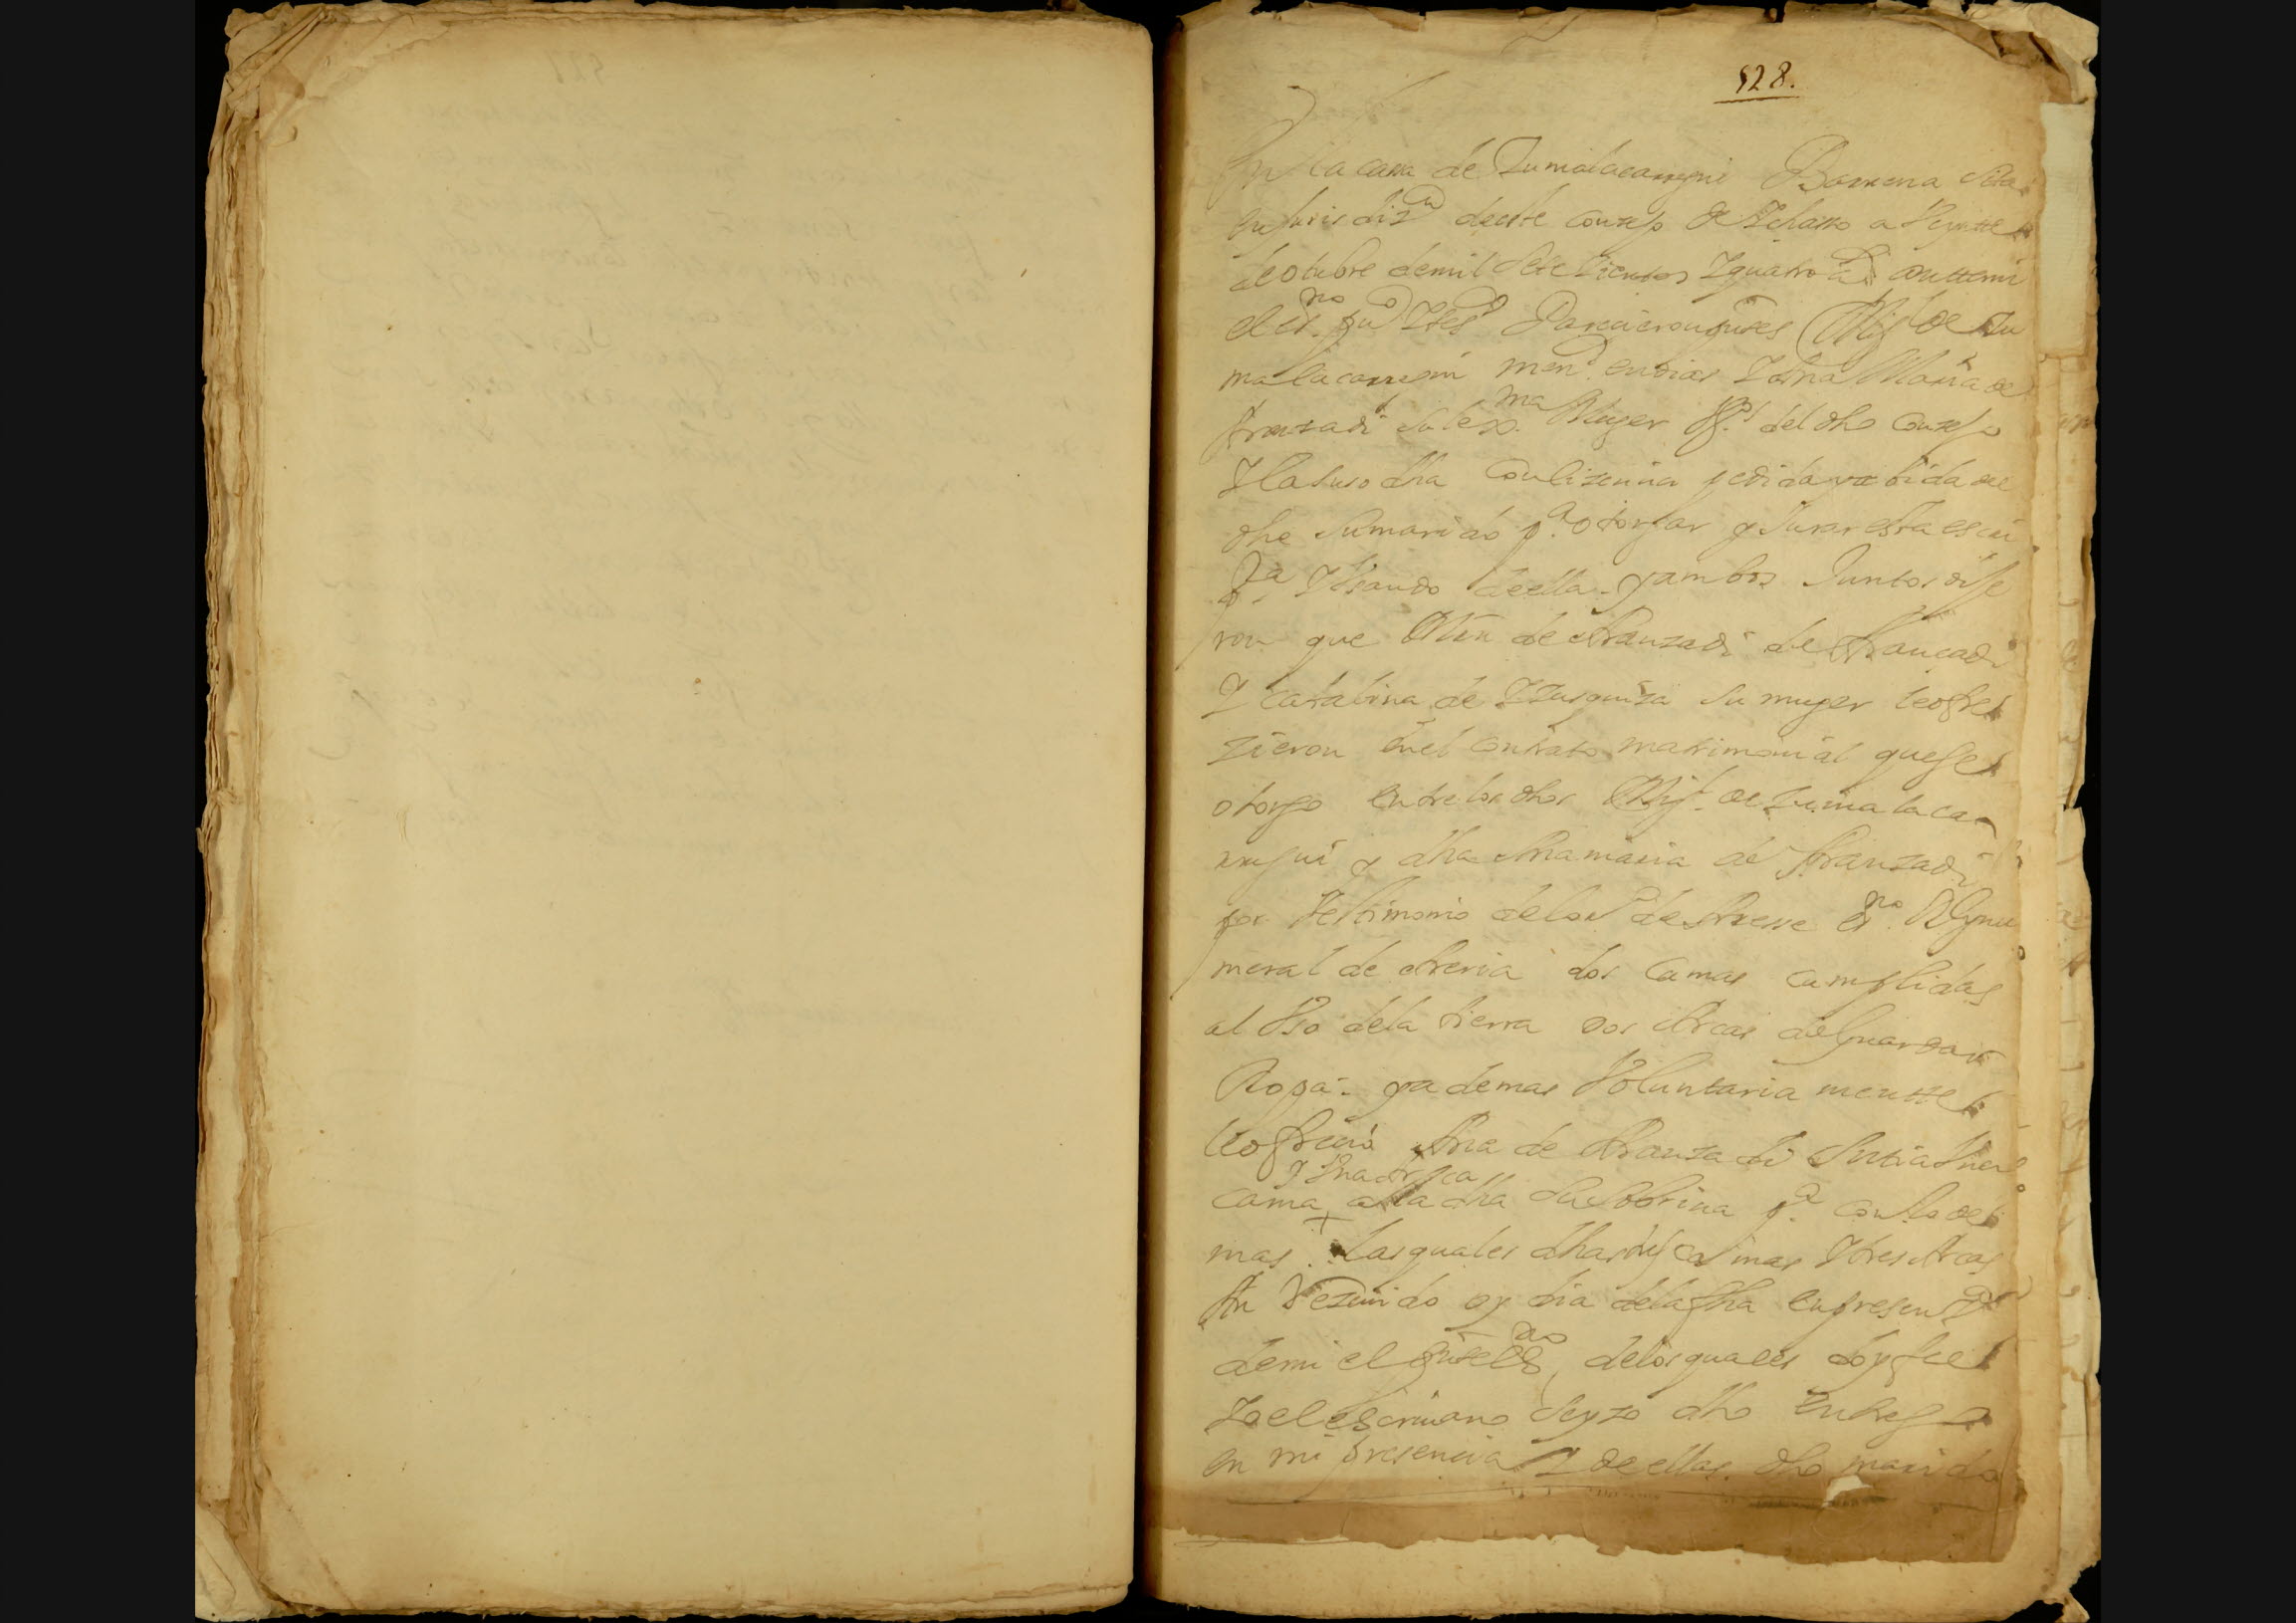 528.
En la cassa de Zumalacarregui Barrena sita
en jurisdiz.on de este conzejo de Ichasso a Veyntte
de otubre de mil setecientos y quatro a.s antte mi
el es.no pu.co y tes.os parecieron pntes Mig.l de Zu
malacarregui men.r en dias y Ana Maria de
Aranzadi su lex.ma Muger v.s del dho conzejo
y la suso dha con lizenzia pedida y rezibida de
dho su marido p.a otorgar y jurar esta escri
p.ra Vsando de ella y ambos Juntos dije
ron que Mrn de Aranzadi de Arançadi
y Catalina de Yzusquiza su muger le ofre
zieron en el contrato matrimonial que se
otorgo entre los dhos Mig.l de Zumalaca
rregui y dha Ana maria de Aranzadi
por Testimonio de de es.no R.l y nu
meral de Areria dos Camas Cumplidas
al Vso de la tierra dos Arcas de guardar
Ropa y ademas Voluntaria mentte
le ofrecio Ana de Aranzadi su tia Una
y Vna Arca
cama a la dha su sobrina p.a con lo de
mas. Las quales dhas tres Camas y tres Arcas
An Rezevido oy dia de la fha en presen.a
de mi el pnte es.no de los quales doy fee
Yo el escrivano se yzo dho entrego
en mi presencia y de ellas dho marido